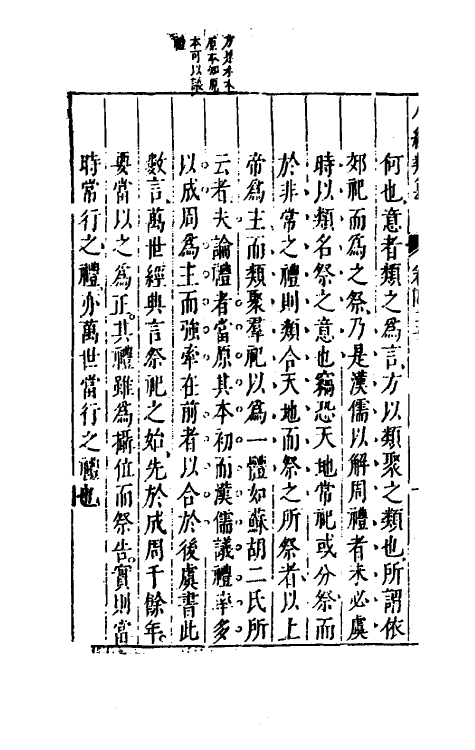 方是求本
原本知原
本可以談
禮
何也意者類之為言方以類聚之類也所謂依
郊祀而為之祭乃是漢儒以解周禮者未必虞
時以類名祭之意也竊恐天地常祀或分祭而
於非常之禮則類合天地而祭之所祭者以上
帝為主而類聚羣祀以為一體如蘇胡二氏所
云者夫論禮者當原其本初而漢儒議禮率多
以成周為主而強牽在前者以合於後虞書此
數言萬世經典言祭祀之始先於成周千餘年
要當以之為正其禮雖為攝位而祭告實則當
時常行之禮亦萬世當行之禮也